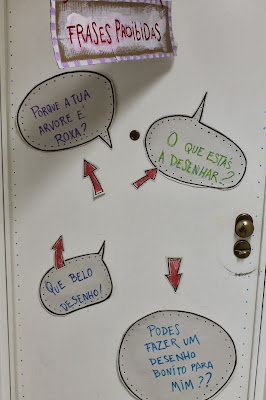 FRASES PROIBIDAS
PORQUE A TUA
ARVORE É
ROXA?
O QUE ESTÁS
A DESENHAR..?
QUE BELO
DESENHO!
PODES
FAZER UM
DESENHO
BONITO PARA
MIM??